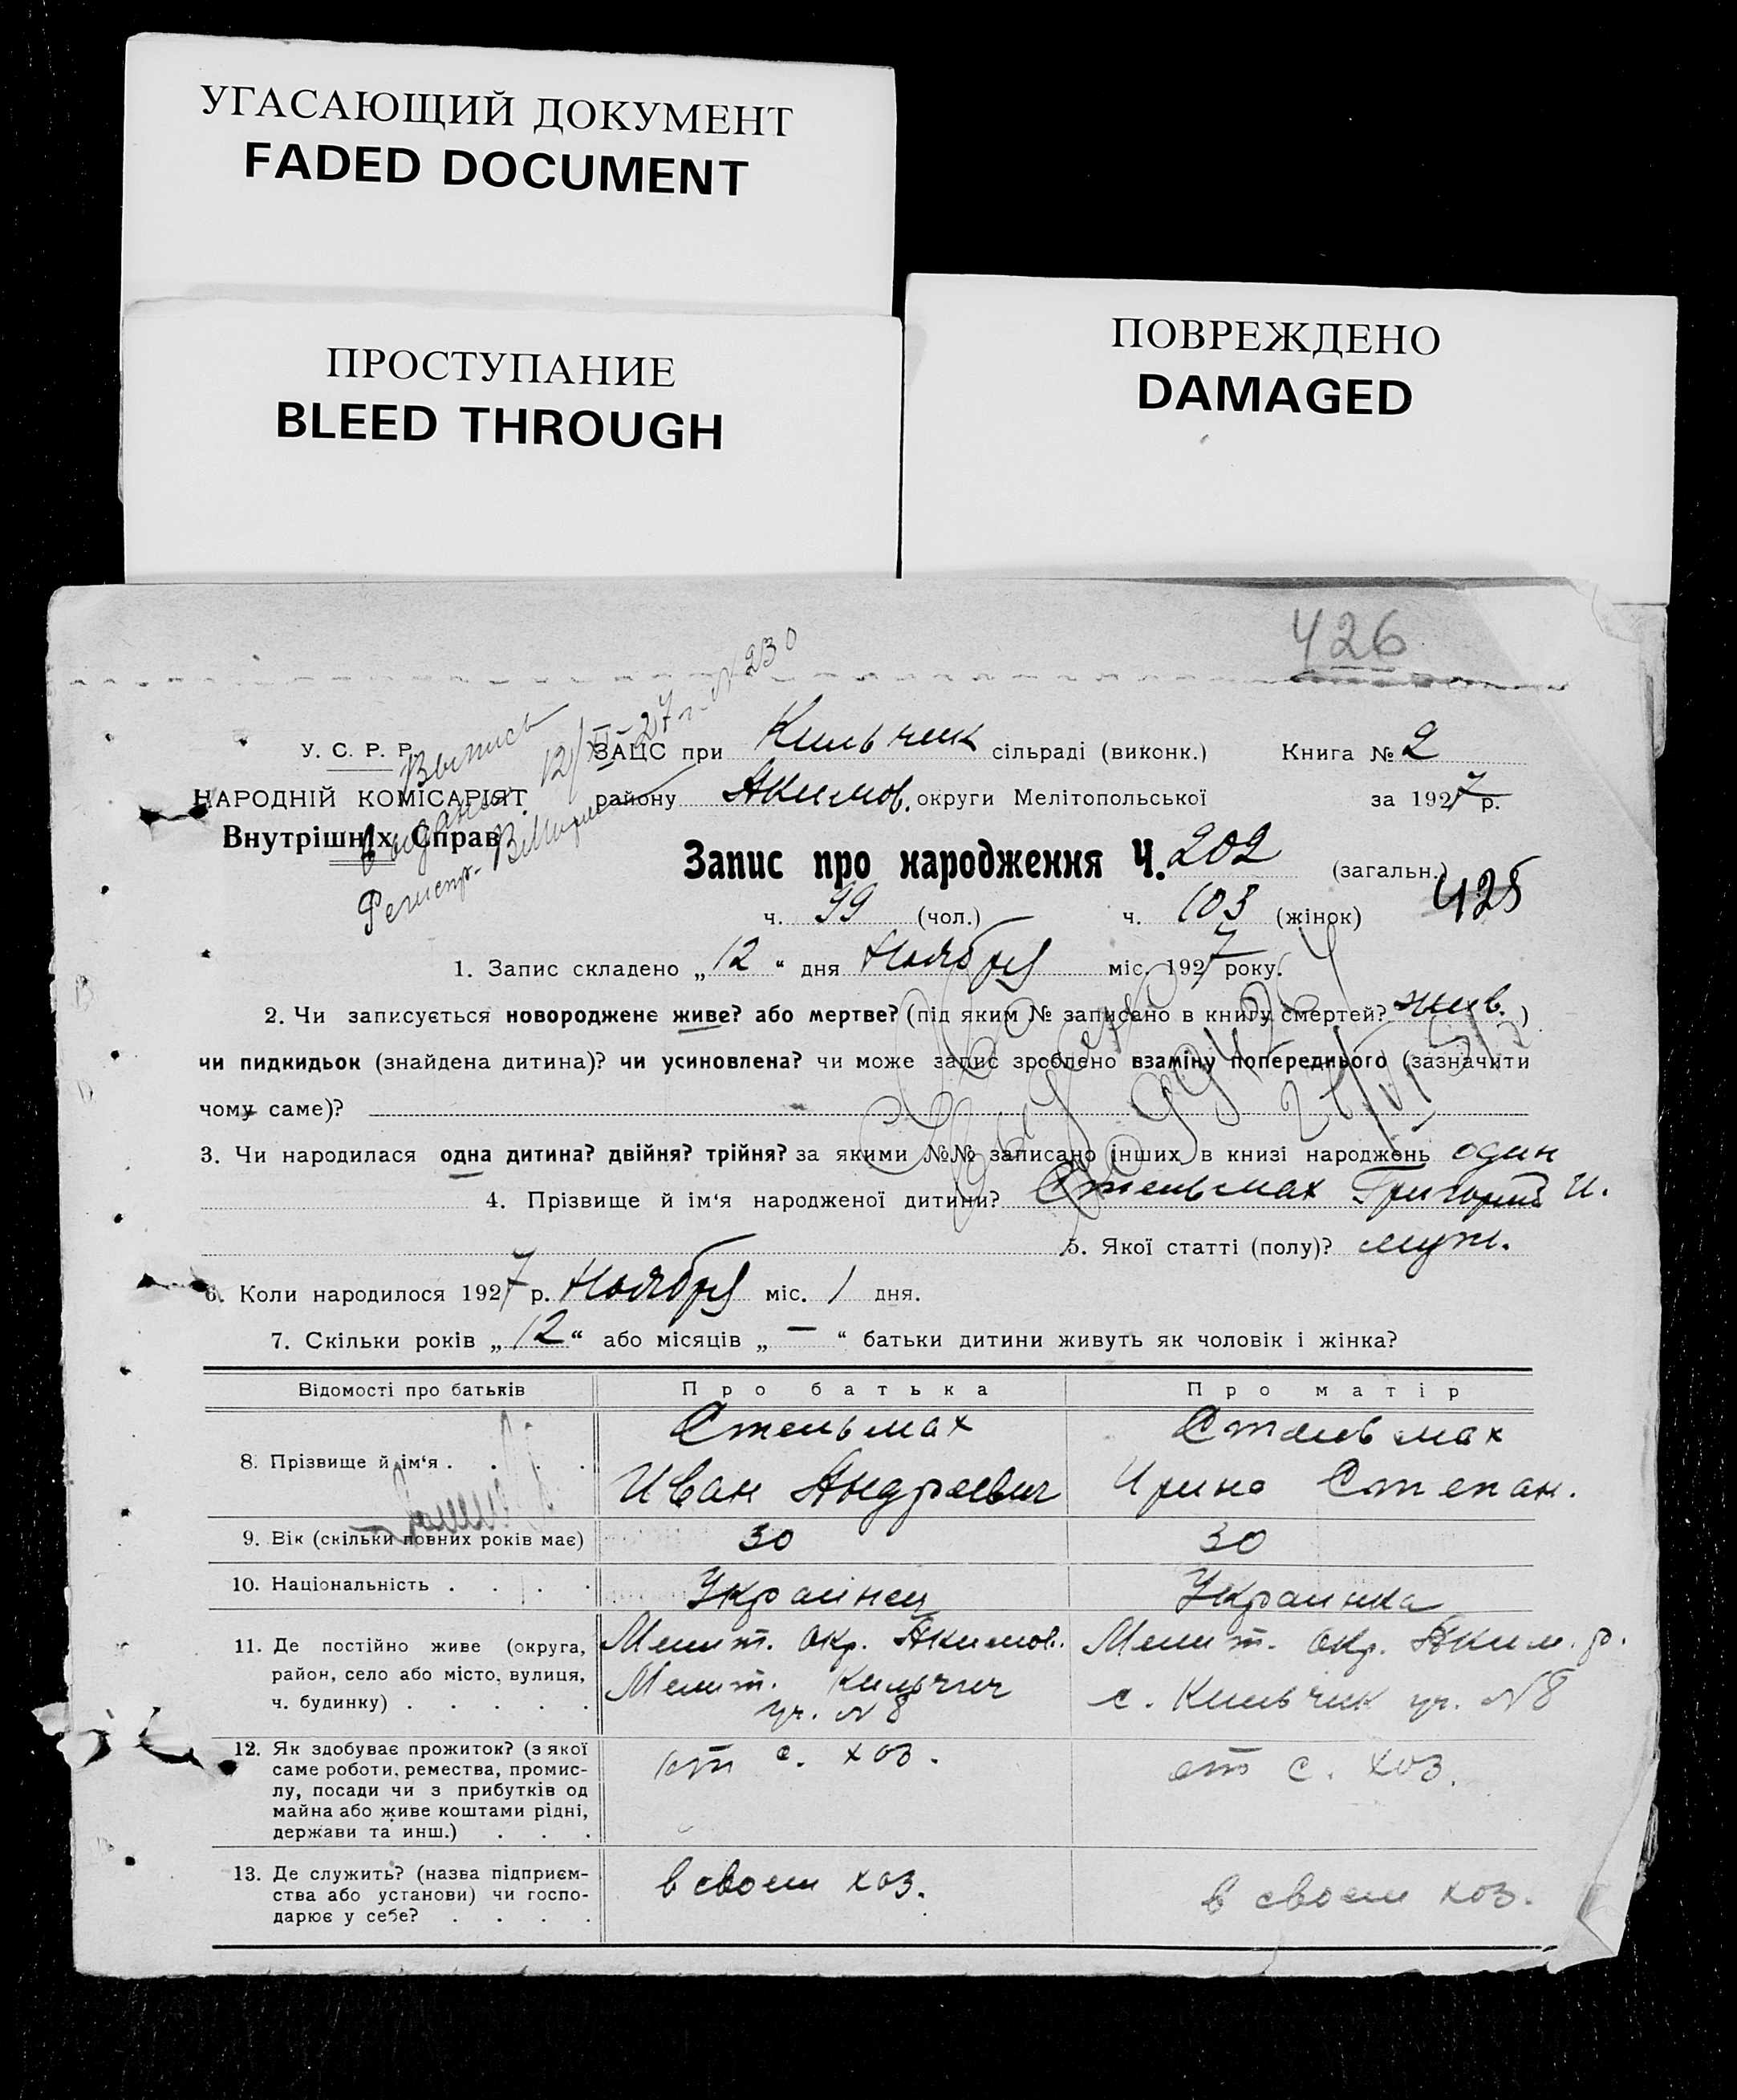 УГАСАЮЩИЙ ДОКУМЕНТ
FADED DOCUMENT
ПРОСТУПАНИЕ
BLEED THROUGH
ПОВРЕЖДЕНО
DAMAGED
426
У. С. Р. Р.
НАРОДНІЙ КОМІСАРІЯТ
Внутрішніх Справ
Выпись
12/XI-27 г. N 230
ЗАЦС при Кильчик сільраді (виконк.) Книга № 2
району Акимов. округи Мелітопольської за 1927 р.
Запис про народження Ч. 202 (загальн.)
425
ч. 99 (чол.) ч. 103 (жінок)
1. Запис складено „12“ дня Ноября міс. 1927 року.
2. Чи записується новороджене живе? або мертве? (під яким № записано в книгу смертей? жив. )
чи пидкидьок (знайдена дитина)? чи усиновлена? чи може запис зроблено взаміну попереднього (зазначити
чому саме)?
3. Чи народилася одна дитина? двійня? трійня? за якими №№ записано інших в книзі народжень один
4. Прізвище й ім‘я народженої дитини? Стельмах Григорий И.
5. Якої статті (полу)? муж.
6. Коли народилося 1927 р. Ноября міс. 1 дня.
7. Скільки років „12“ або місяців „—“ батьки дитини живуть як чоловік і жінка?
Відомості про батьків Про батька Про матір
8. Прізвище й ім‘я . . . . Стельмах Иван Андреевич Стельмах Ирина Степан.
9. Вік (скільки повних років має) 30 30
10. Національність . . . . Украинец Украинка
11. Де постійно живе (округа, район, село або місто, вулиця, ч. будинку) . . . . . Мелит. окр. Акимов. Мелит. Кильчик уч. N 8 Мелит. окр. Аким. р. с. Кильчик уч. N 8
12. Як здобуває прожиток? (з якої саме роботи, ремества, промислу, посади чи з прибутків од майна або живе коштами рідні, держави та инш.) . . . от с. хоз. от с. хоз.
13. Де служить? (назва підприємства або установи) чи господарює у себе? . . . . в своем хоз. в своем хоз.